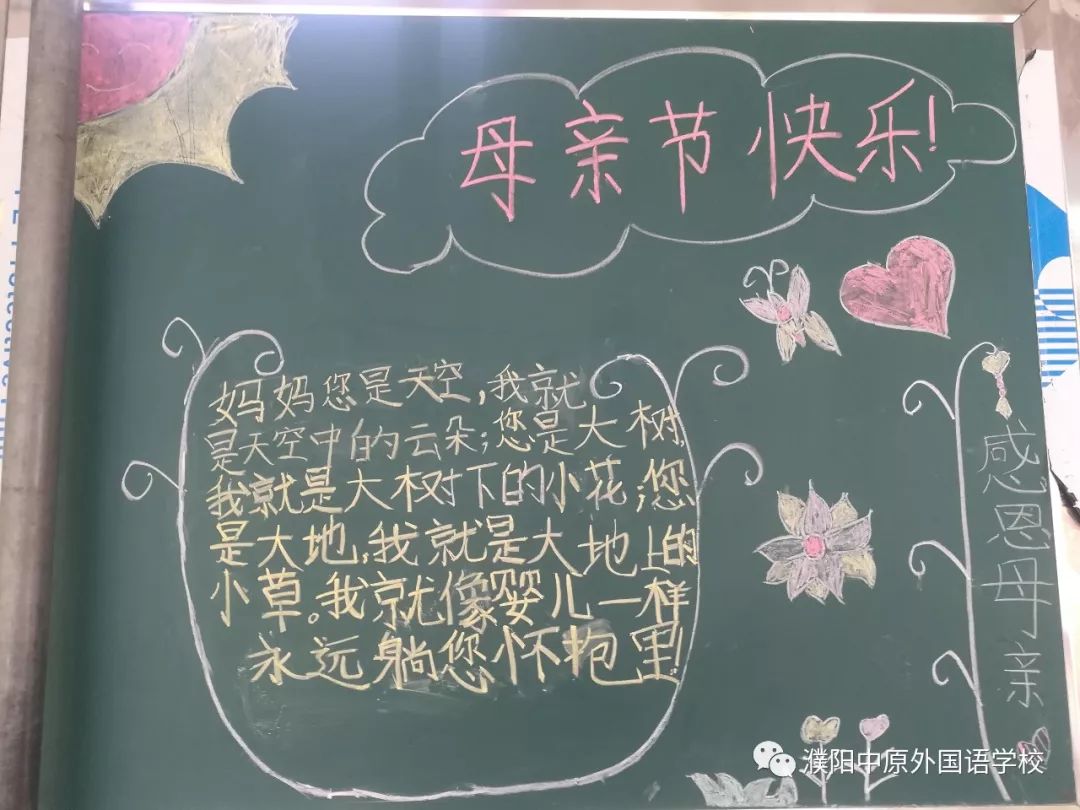 母亲节快乐!
妈妈您是天空,我就
是天空中的云朵;您是大树,
我就是大树下的小花;您
是大地,我就是大地上的
小草。我就像婴儿一样
永远躺您怀抱里!
感恩母亲
濮阳中原外国语学校